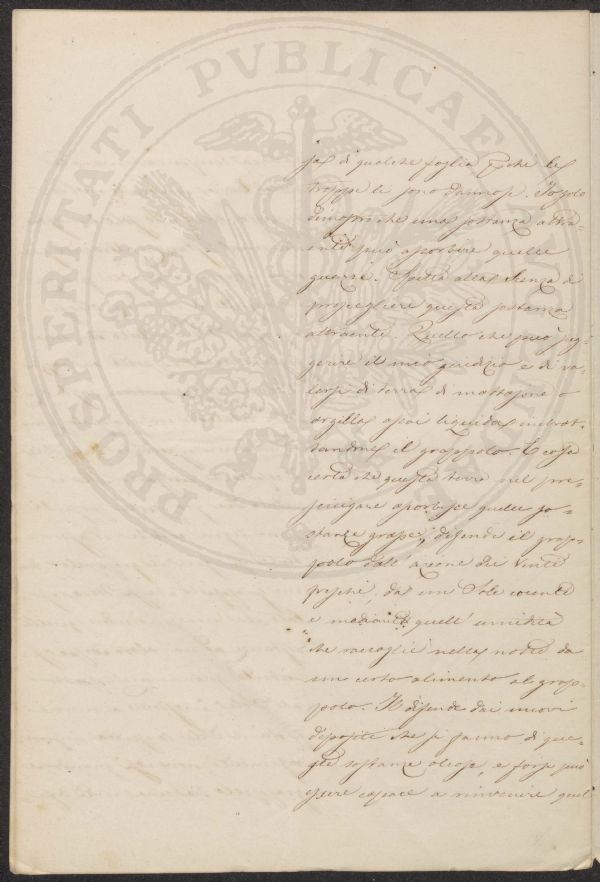 PROSPERITATI PVBLICAE AVGENDAE
sas di qualche foglia perchè le
troppe le sono dannose. Io solo
dimostri che una sostanza attra-
ente può assorbire quelle
guazzi. Spetta alla Scienza di
prescegliere questa sostanza
attraente. Quello che può sug-
gerire il mio giudizio e di va-
lersi di terra di mattajone o
argilla assai liquida imbrat-
tandone il grappolo. È cosa
certa che questa terra nel pro-
sciugare assorbisce quelle so-
stanze grasse, difende il grap-
polo dall'azione dei venti
freschi, da un Sole cocente
e mediante quell'umidità
che raccoglie nella notte da
un certo alimento al grap-
polo. Il difende dai nuovi
depositi che si fanno di que-
ste sostanze oleose, e forse può
essere capace a rinvenire quel